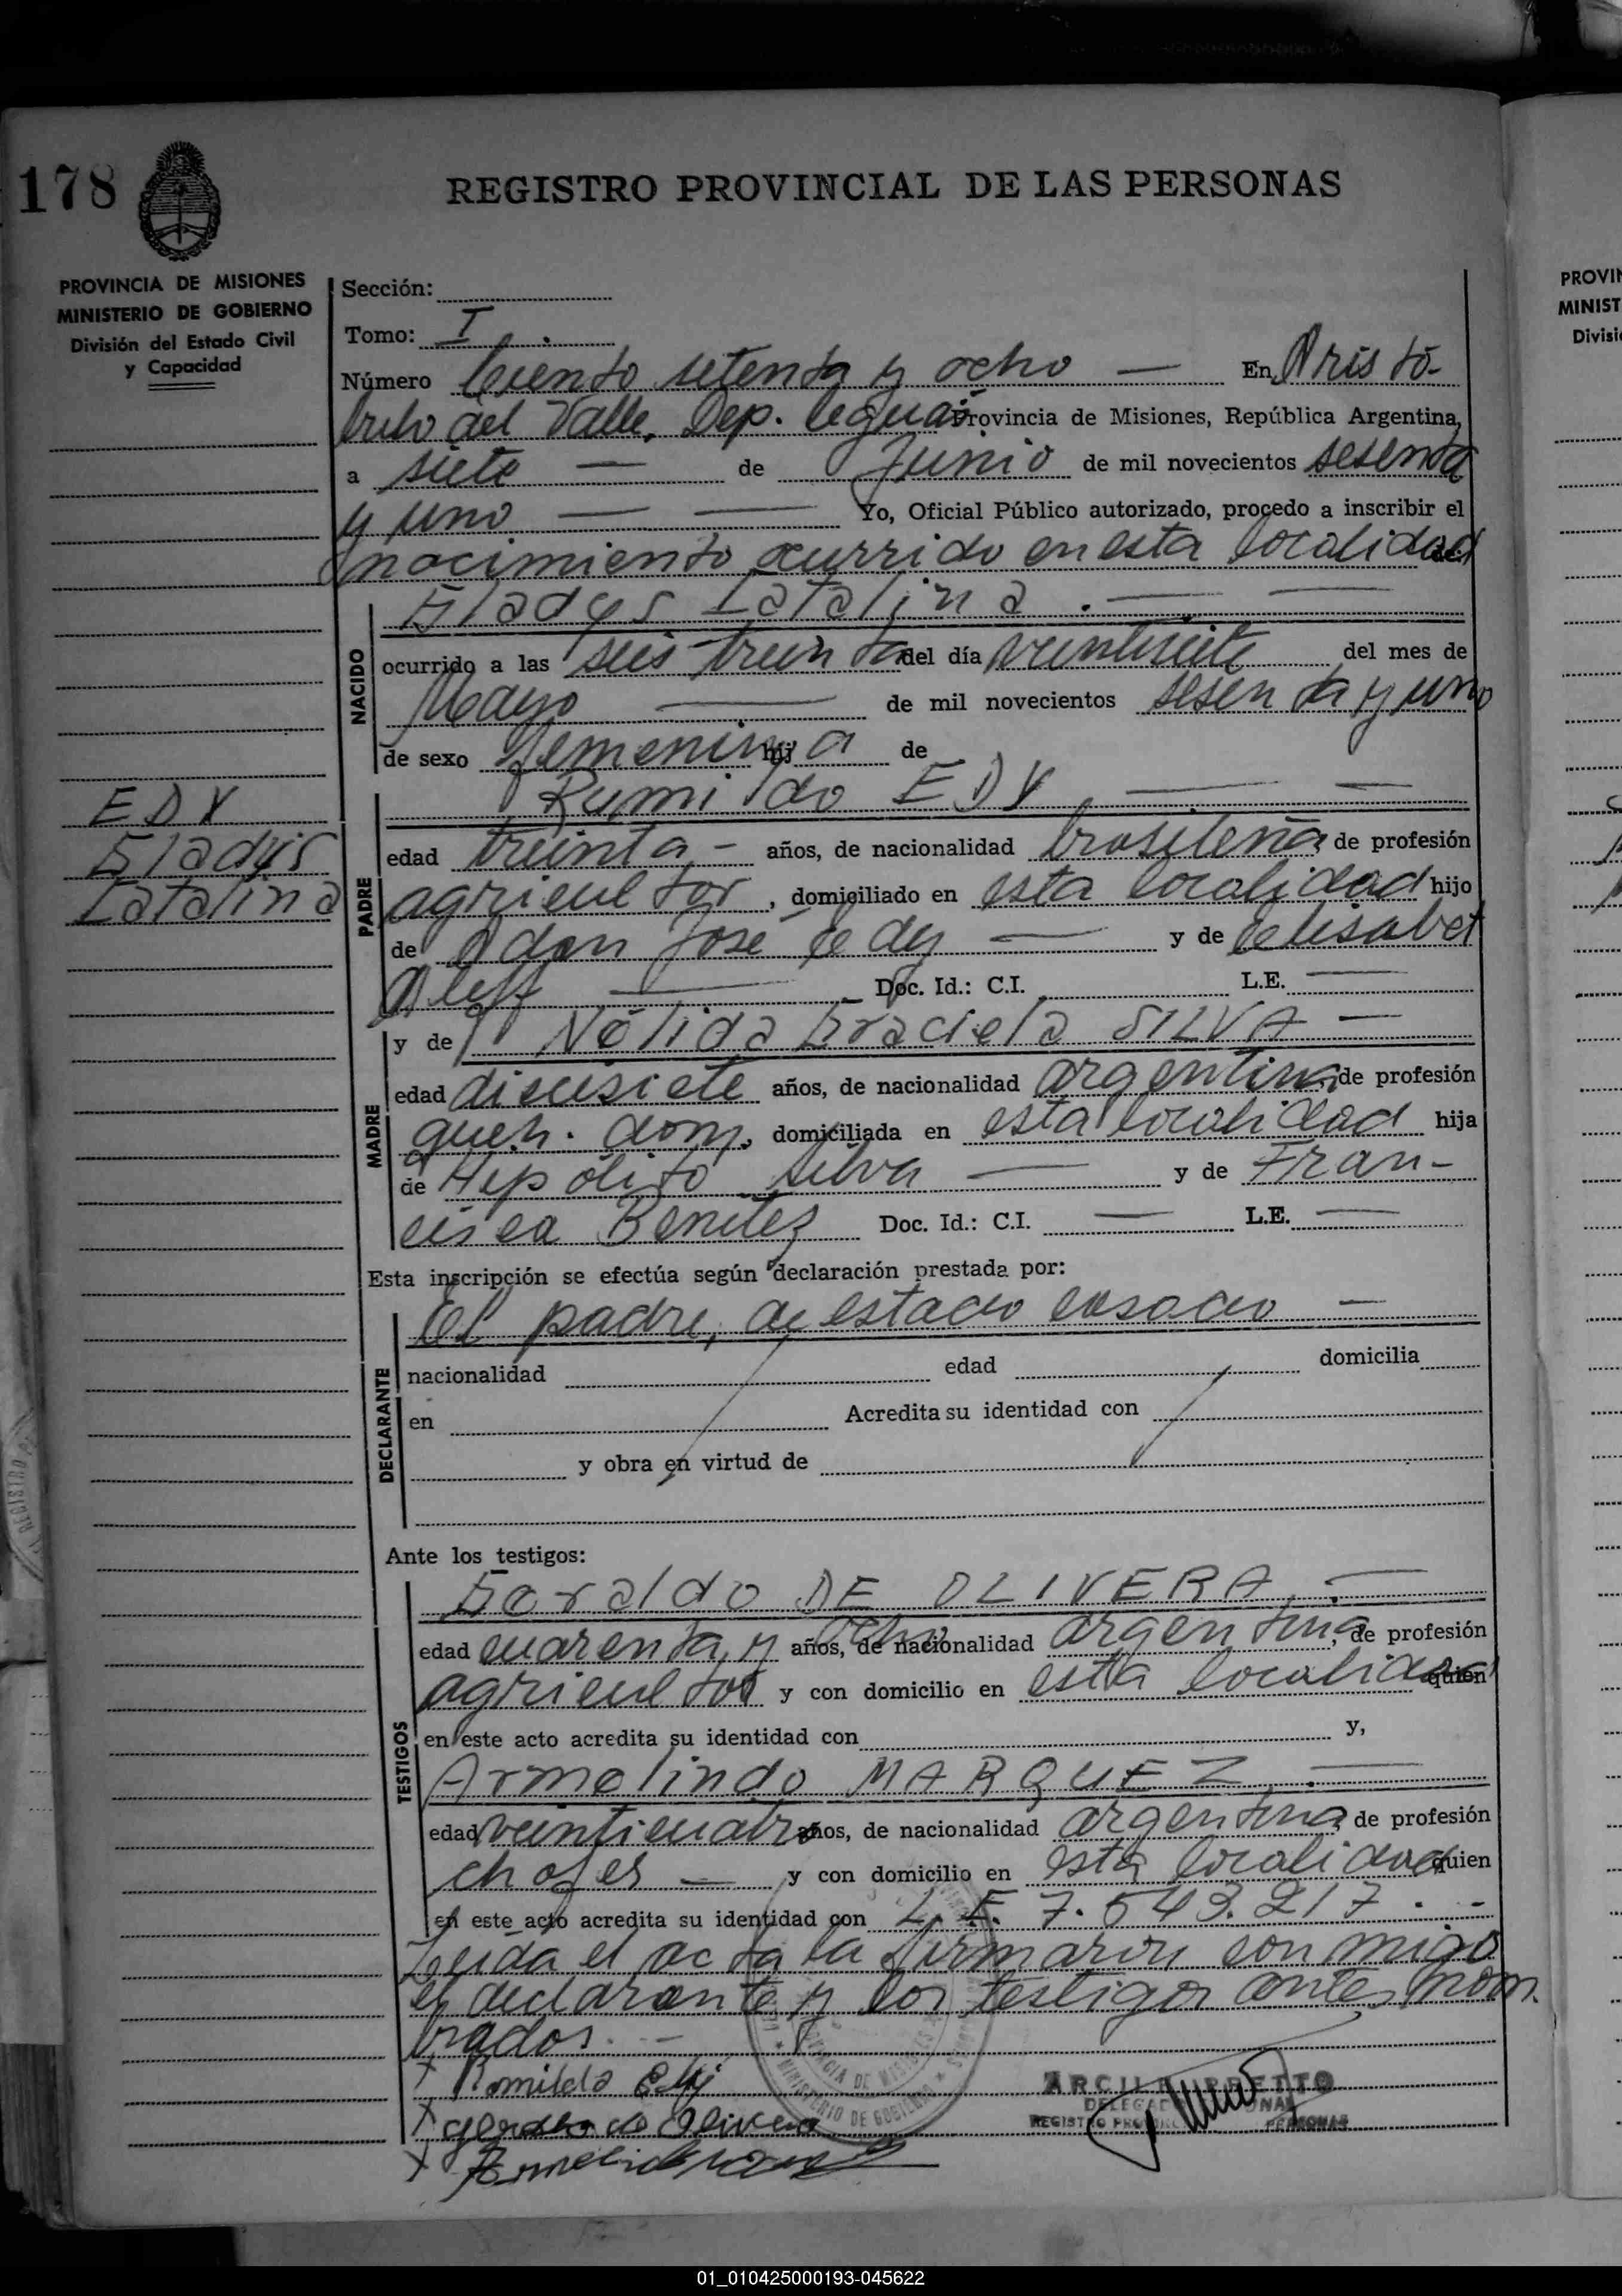 178
REGISTRO PROVINCIAL DE LAS PERSONAS
PROVINCIA DE MISIONES
MINISTERIO DE GOBIERNO
División del Estado Civil
y Capacidad
Sección:
Tomo: I
Número Ciento setenta y ocho — En Aristó-
bulo del Valle, Dep. Cıguás Provincia de Misiones, República Argentina,
a siete — de Junio de mil novecientos sesenta
y uno — — Yo, Oficial Público autorizado, procedo a inscribir el
nacimiento ocurrido en esta localidad de:
Gladys Catalina . — —
NACIDO
ocurrido a las seis treinta del día veintisiete del mes de
Mayo — de mil novecientos sesenta y uno
de sexo femenina hija de
Rumildo EDY . — —
EDY
Gladys
Catalina
PADRE
edad treinta - años, de nacionalidad brasileña de profesión
agricultor , domiciliado en esta localidad hijo
de Adan José Edy — y de Elisabet
Aleff — Doc. Id.: C.I. L.E. —
MADRE
y de Nélida Graciela SILVA —
edad diecisiete años, de nacionalidad argentina, de profesión
queh. dom., domiciliada en esta localidad hija
de Hipólito Silva — y de Fran-
cisca Benitez Doc. Id.: C.I. — L.E. —
Esta inscripción se efectúa según declaración prestada por:
DECLARANTE
El padre, de estado casado —
nacionalidad edad domicilia
en Acredita su identidad con
y obra en virtud de
Ante los testigos:
TESTIGOS
Geraldo DE OLIVERA . —
edad cuarenta y ocho años, de nacionalidad argentina, de profesión
agricultor y con domicilio en esta localidad quien
en este acto acredita su identidad con y,
Armelindo MARQUEZ . —
edad veinticuatro años, de nacionalidad argentina de profesión
chofer — y con domicilio en esta localidad quien
en este acto acredita su identidad con L. E. 7.543.217 . -
Leida el acta la firmaron conmigo
el declarante y los testigos antes nom.
brados. -
x Romildo Edy
x Geraldo de Olivera
x
REGISTRO PROVINCIAL
PERSONAS
PROVINCIA DE MISIONES
MINISTERIO DE GOBIERNO
01_010425000193-045622